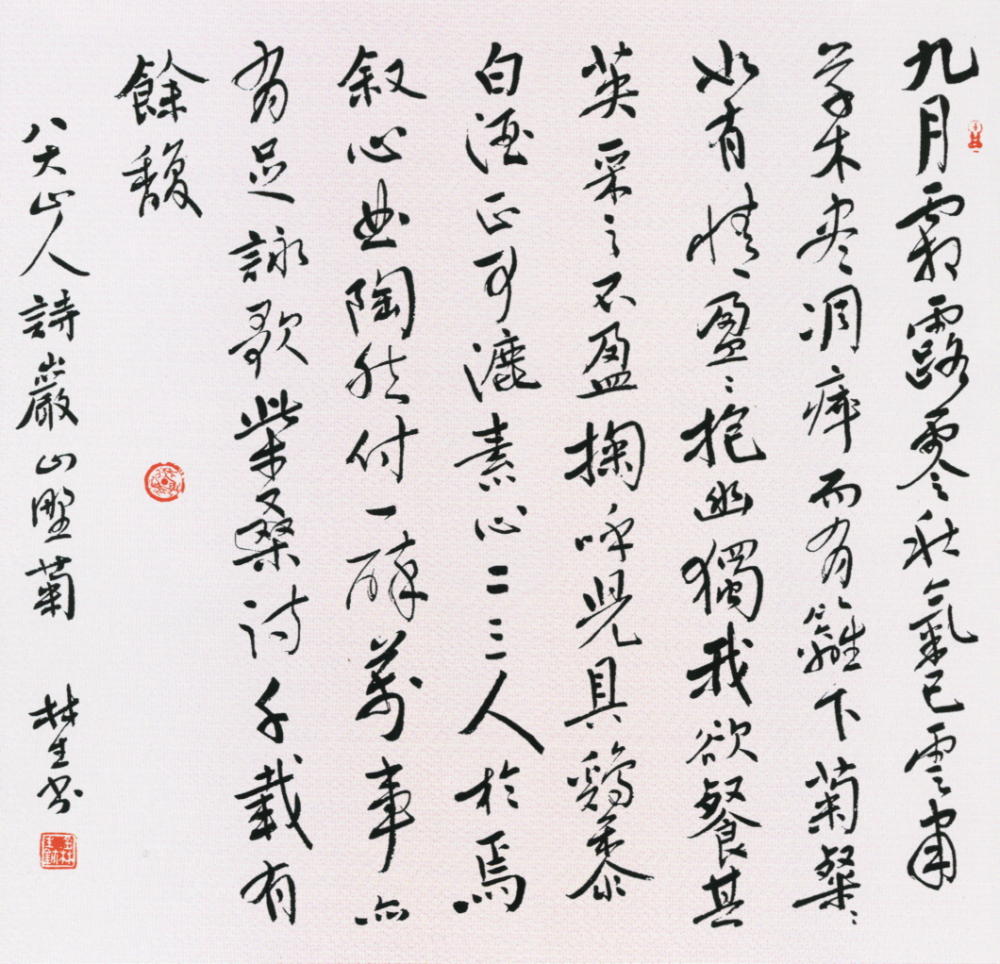 九月霜露零秋氣已雲肅
草木尽凋瘁而有籬下菊粲粲
如有情盈盈抱幽獨我欲餐其
英采之不盈掬呼児具鷄黍
白酒正可漉素心二三人於焉
叙心曲陶然付一醉萬事亦
有足詠歌柴桑詩千載有
餘馥
八大山人詩巖山野菊 林生書